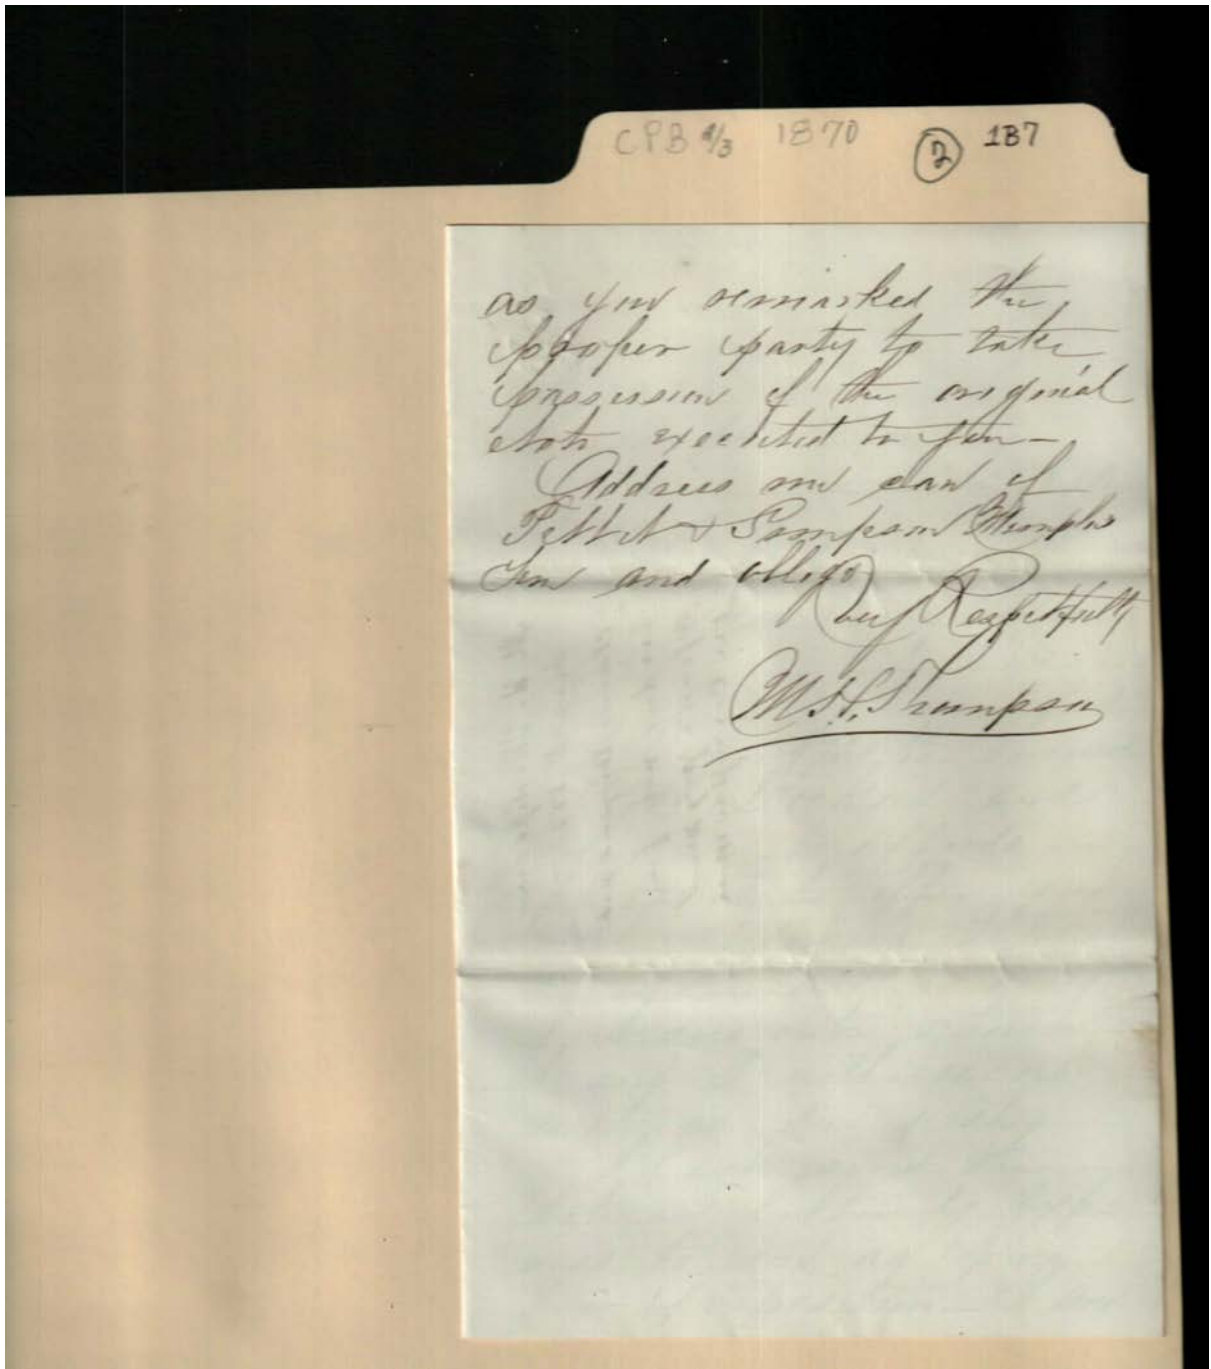 CPB 4/3 1870 2 1B7
as you remarked the
proper party to take
possession of the original
note executed to you —
Address me care of
Pettit & Simpson Memphis
Ten and oblige
Very Respectfully
M. H. Thompson